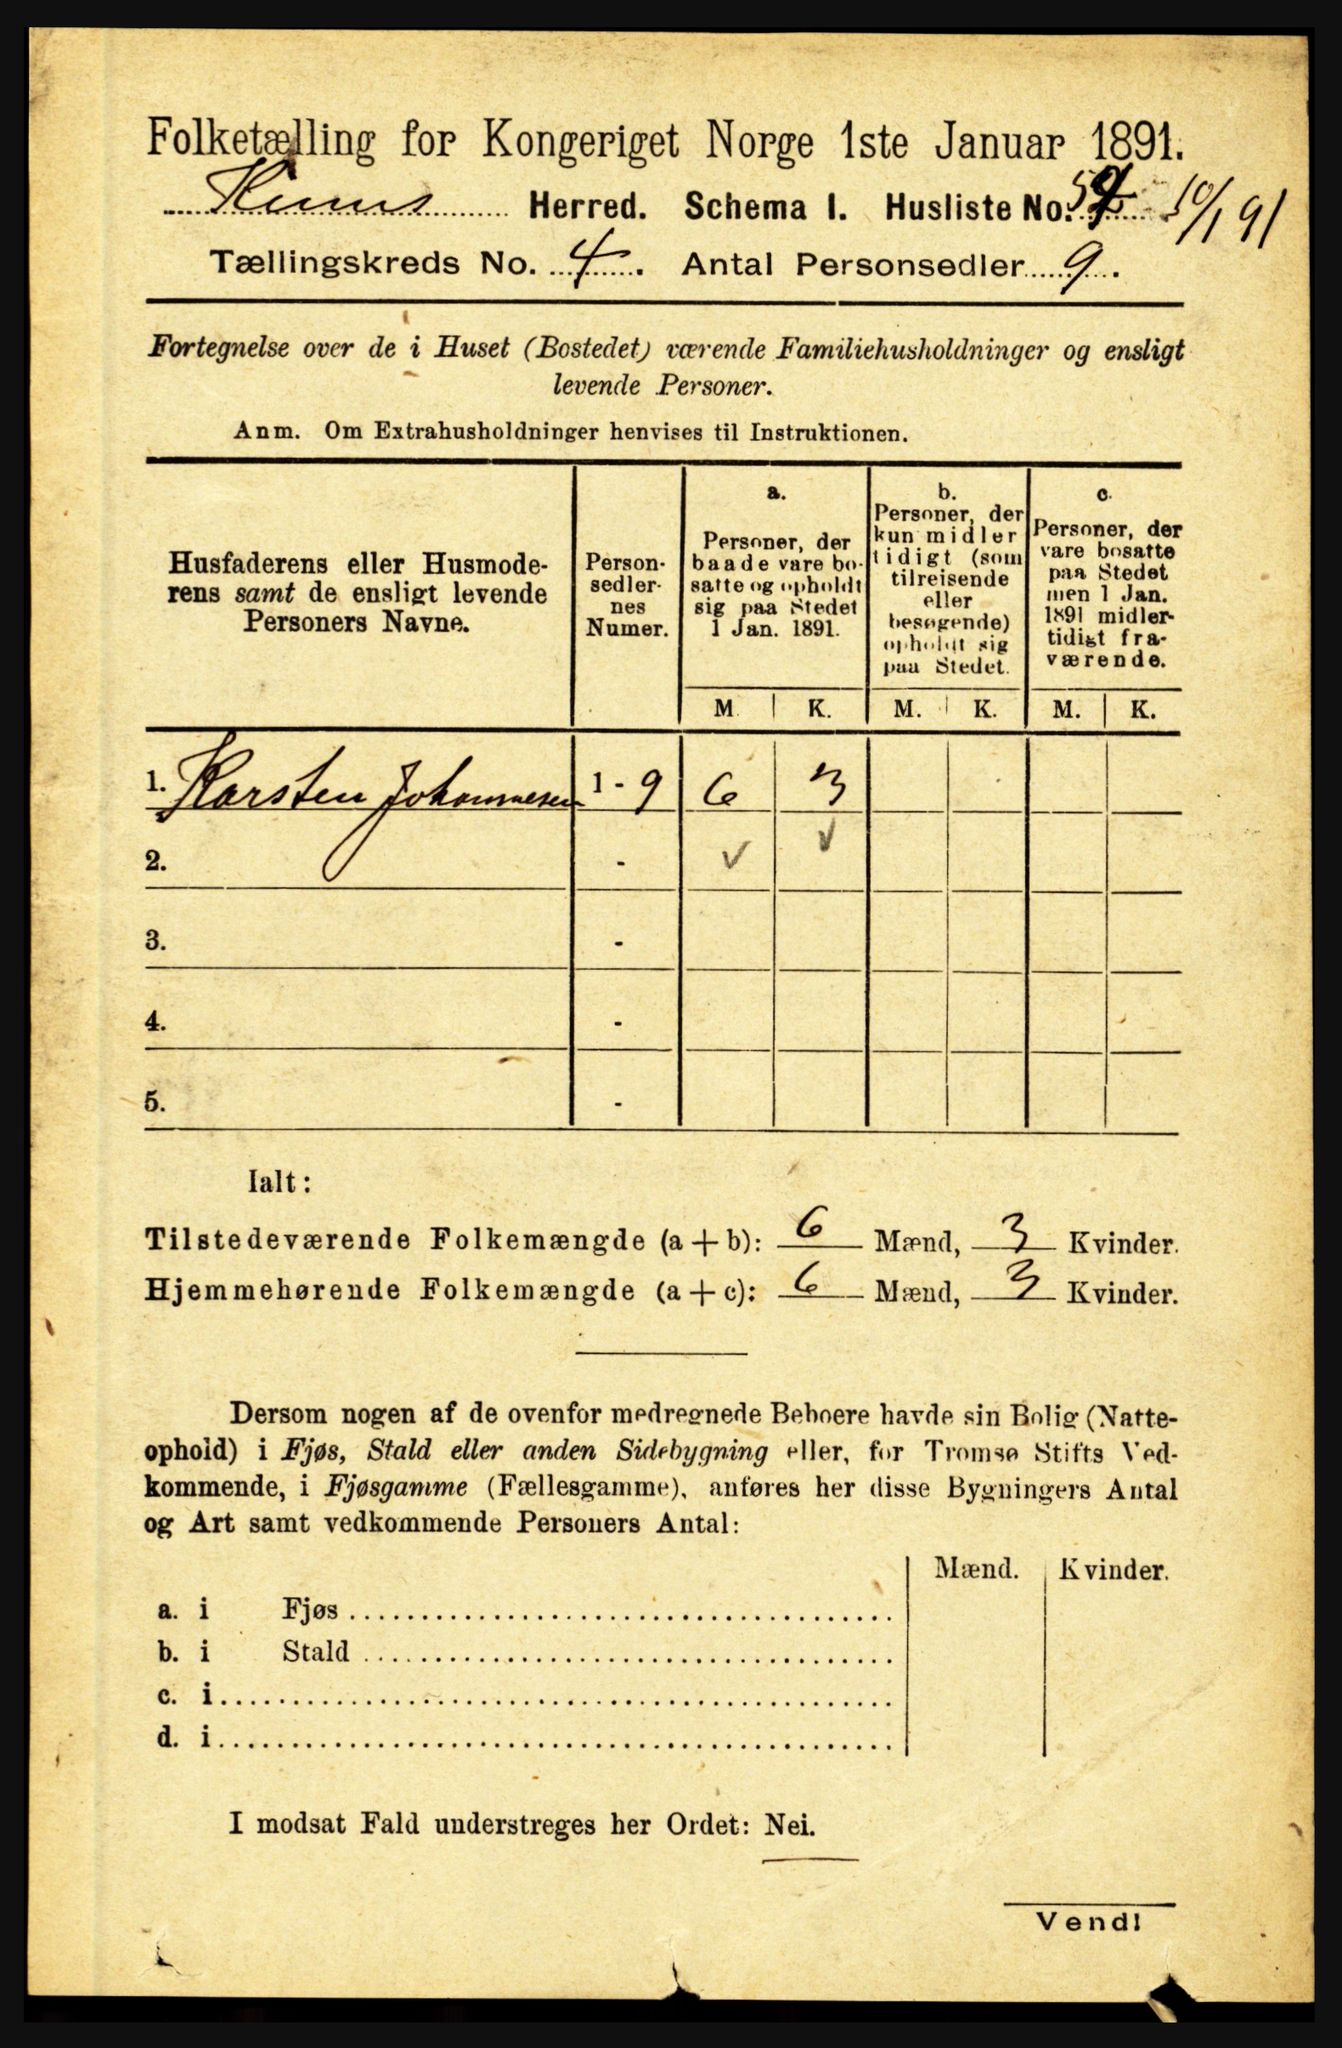 Folketælling for Kongeriget Norge 1ste Januar 1891.
Herred. Schema I. Husliste No.
Tællingskreds No. 4. Antal Personsedler 9.
Fortegnelse over de i Huset (Bostedet) værende Familiehusholdninger og ensligt
levende Personer.
Anm. Om Extrahusholdninger henvises til Instruktionen.
Husfaderens eller Husmode-
rens samt de ensligt levende
Personers Navne.
Person-
sedler-
nes
Numer.
a.
Personer, der
baade vare bo-
satte og opholdt
sig paa Stedet
1 Jan. 1891.
b.
Personer, der
kun midler
tidigt (som
tilreisende
eller
besøgende)
opholdt sig
paa Stedet.
c.
Personer, der
vare bosatte
paa Stedet
men 1 Jan.
1891 midler-
tidigt fra-
værende.
M. K. M. K. M. K.
1. Karsten Johannesen 1 - 9 6 3
2. - ✓ ✓
3. -
4. -
5. -
Ialt:
Tilstedeværende Folkemængde (a + b): 6 Mænd, 3 Kvinder.
Hjemmehørende Folkemængde (a + c): 6 Mænd, 3 Kvinder.
Dersom nogen af de ovenfor medregnede Beboere havde sin Bolig (Natte-
ophold) i Fjøs, Stald eller anden Sidebygning eller, for Tromsø Stifts Ved-
kommende, i Fjøsgamme (Fællesgamme), anføres her disse Bygningers Antal
og Art samt vedkommende Personers Antal:
Mænd. Kvinder.
a. i Fjøs
b. i Stald
c. i
d. i
I modsat Fald understreges her Ordet: Nei.
Vend!